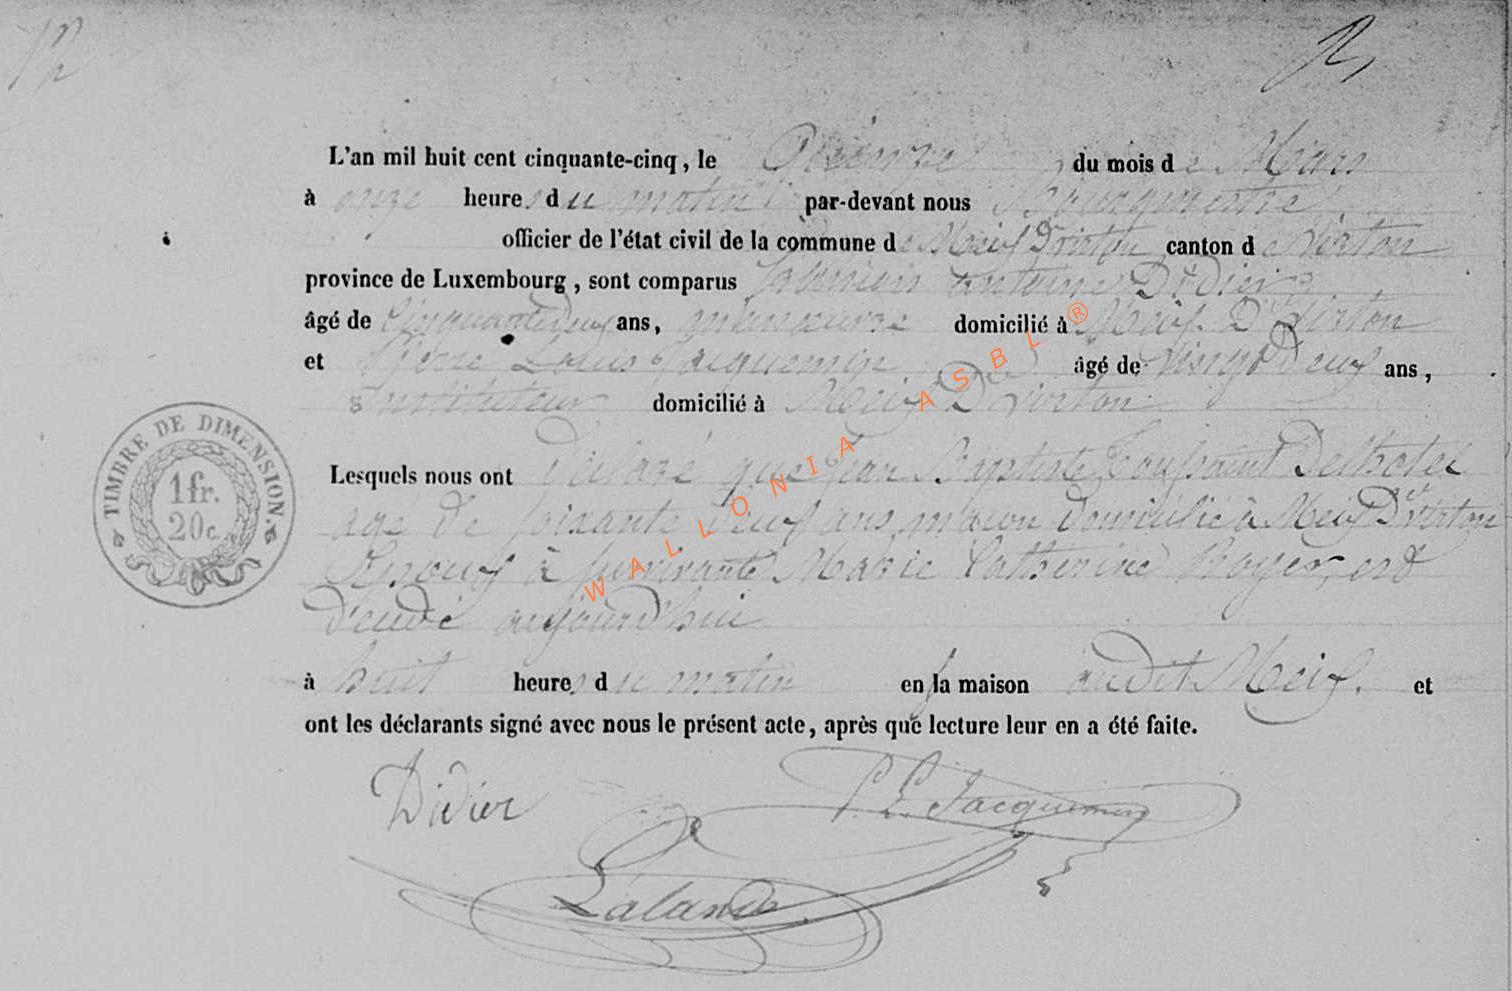 L'an mil huit cent cinquante-cinq, le Quinze du mois de Mars
à onze heures du matin par-devant nous Bourgmestre
officier de l'état civil de la commune de Meix d Virton canton de Virton
province de Luxembourg, sont comparus antoine Didier
âgé de Cinquante deux ans, manoeuvre domicilié à Meix D Virton
et Pierre Louis Jacquemin âgé de Vingt Deux ans,
Instituteur domicilié à Meix D Virton
Lesquels nous ont Déclaré que Jean Baptiste Toussaint Delhotel
agé de soixante neuf ans, maçon domicilié à Meix D Virton
Epoux à survivante Marie Catherine Royer, est
décédé aujourd'hui
à huit heures du matin en sa maison audit Meix. et
ont les déclarants signé avec nous le présent acte, après que lecture leur en a été faite.
Didier P. L. Jacquemin
Lalande
TIMBRE DE DIMENSION.
1 fr.
20 c.
WALLONIA ASBL ®